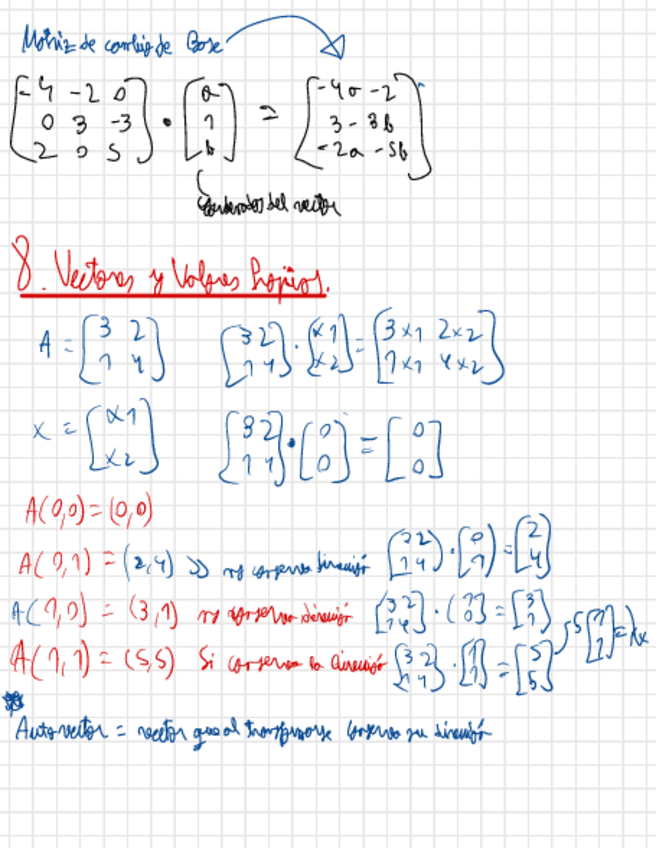 Matriz de cambio de Base
[-4 -2 0; 0 3 -3; 2 0 5] · [a; 1; b] = [-4a -2; 3 - 3b; -2a -5b]
Coordenadas del vector
8. Vectores y Valores Propios.
A = [3 2; 1 4] [3 2; 1 4] · [x1; x2] = [3x1 2x2; 1x1 4x2]
x = [x1; x2] [3 2; 1 4] · [0; 0] = [0; 0]
A(0,0) = (0,0)
A(0,1) = (2,4) >> no conserva dirección [3 2; 1 4] · [0; 1] = [2; 4]
A(1,0) = (3,1) no conserva dirección [3 2; 1 4] · [1; 0] = [3; 1]
A(1,1) = (5,5) Si conserva la dirección [3 2; 1 4] · [1; 1] = [5; 5] 5[1; 1] = λx
Autovector = vector que al transformarse conserva su dirección